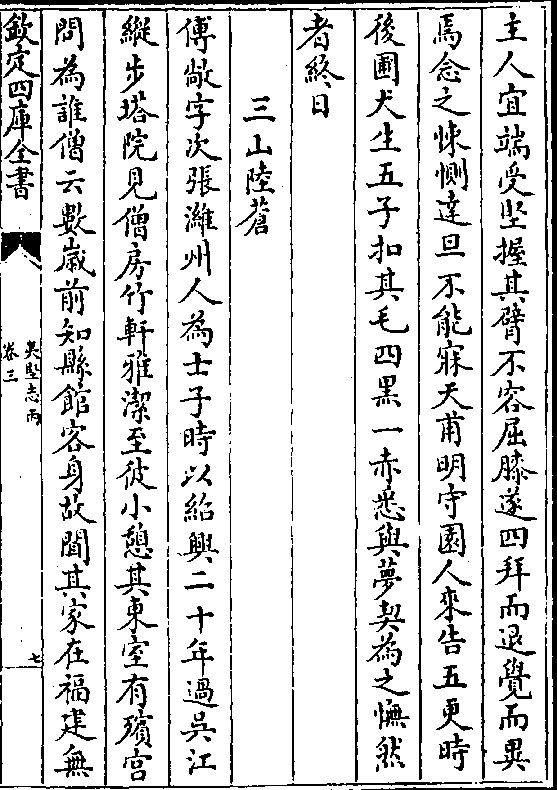 主人宜端受堅握其臂不容屈膝遂四拜而退覺而異
焉念之悚惻達旦不能寐天甫明守園人來告五更時
後圃犬生五子扣其毛四黑一赤悉與夢契為之憮然
者終日
三山陸蒼
傅敞字次張濰州人為士子時以紹興二十年過吳江
縱步塔院見僧房竹軒雅潔至彼小憩其東室有殯宮
問為誰僧云數嵗前知縣館客身故聞其家在福建無
欽定四庫全書
夷堅志丙
卷三
七